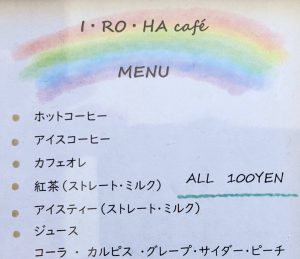 I・RO・HA café
MENU
ホットコーヒー
アイスコーヒー
カフェオレ
紅茶(ストレート・ミルク)
ALL 100YEN
アイスティー(ストレート・ミルク)
ジュース
コーラ・カルピス・グレープ・サイダー・ピーチ